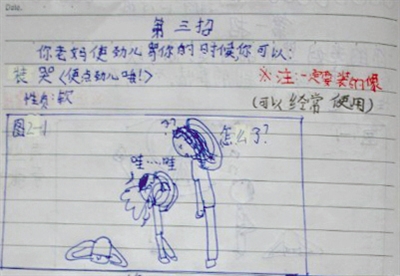 Date.
第三招
你老妈使劲儿 你的时候,你可以:
装哭〈使点劲儿哦!〉 ※注:一定要装的像
性质:软 (可以经常使用)
图2-1 ?? 怎么了?
哇……哇